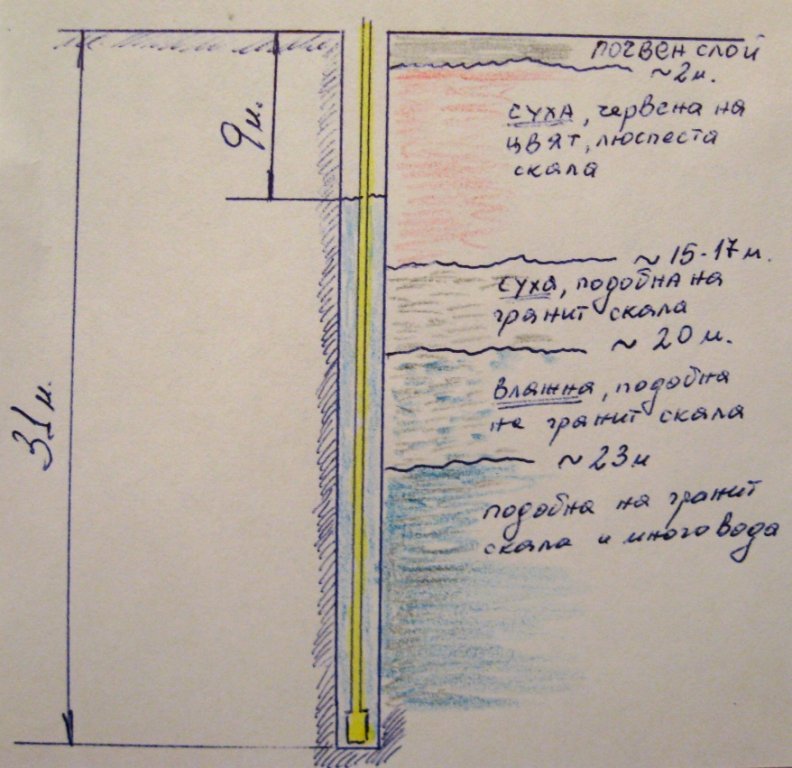 почвен слой
~2м.
суха, червена на
цвят, люспеста
скала
~15-17м.
суха, подобна на
гранит скала
~20м.
влажна, подобна
не гранит скала
~23м
подобна на гранит
скала и много вода
9м.
31м.